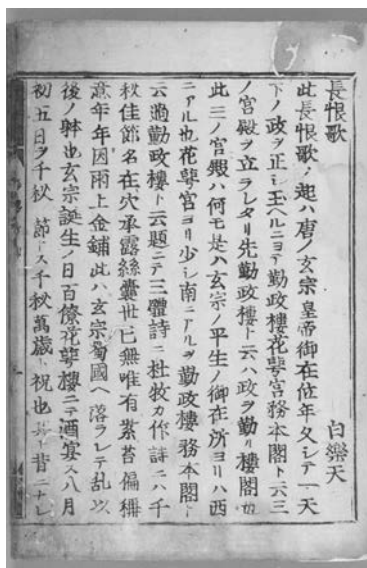 長恨歌 白樂天
此長恨歌ノ起ハ唐ノ玄宗皇帝御在位年久シテ一天
下ノ政ヲ正シ玉ヘルニヨテ勤政樓花萼宮務本閣ト云三
ノ宮殿ヲ立ラレタリ先勤政樓ト云ハ政ヲ勤ル樓閣也
此三ノ宮殿ハ何モ是ハ玄宗ノ平生ノ御在所ヨリハ西
ニアル也花萼宮ヨリ少シ南ニアルヲ勤政樓務本閣ト
云過勤政樓ト云題ニテ三體詩ニ杜牧カ作詩ニハ千
秋佳節名在穴承露絲囊世已無唯有紫苔偏稱
意年年因雨上金鋪此ハ玄宗蜀國ヘ落ラレテ乱以
後ノ躰也玄宗誕生ノ日百僚花萼樓ニテ酒宴ス八月
初五日ヲ千秋節トス千秋萬歳ト祝也 昔ニナレ